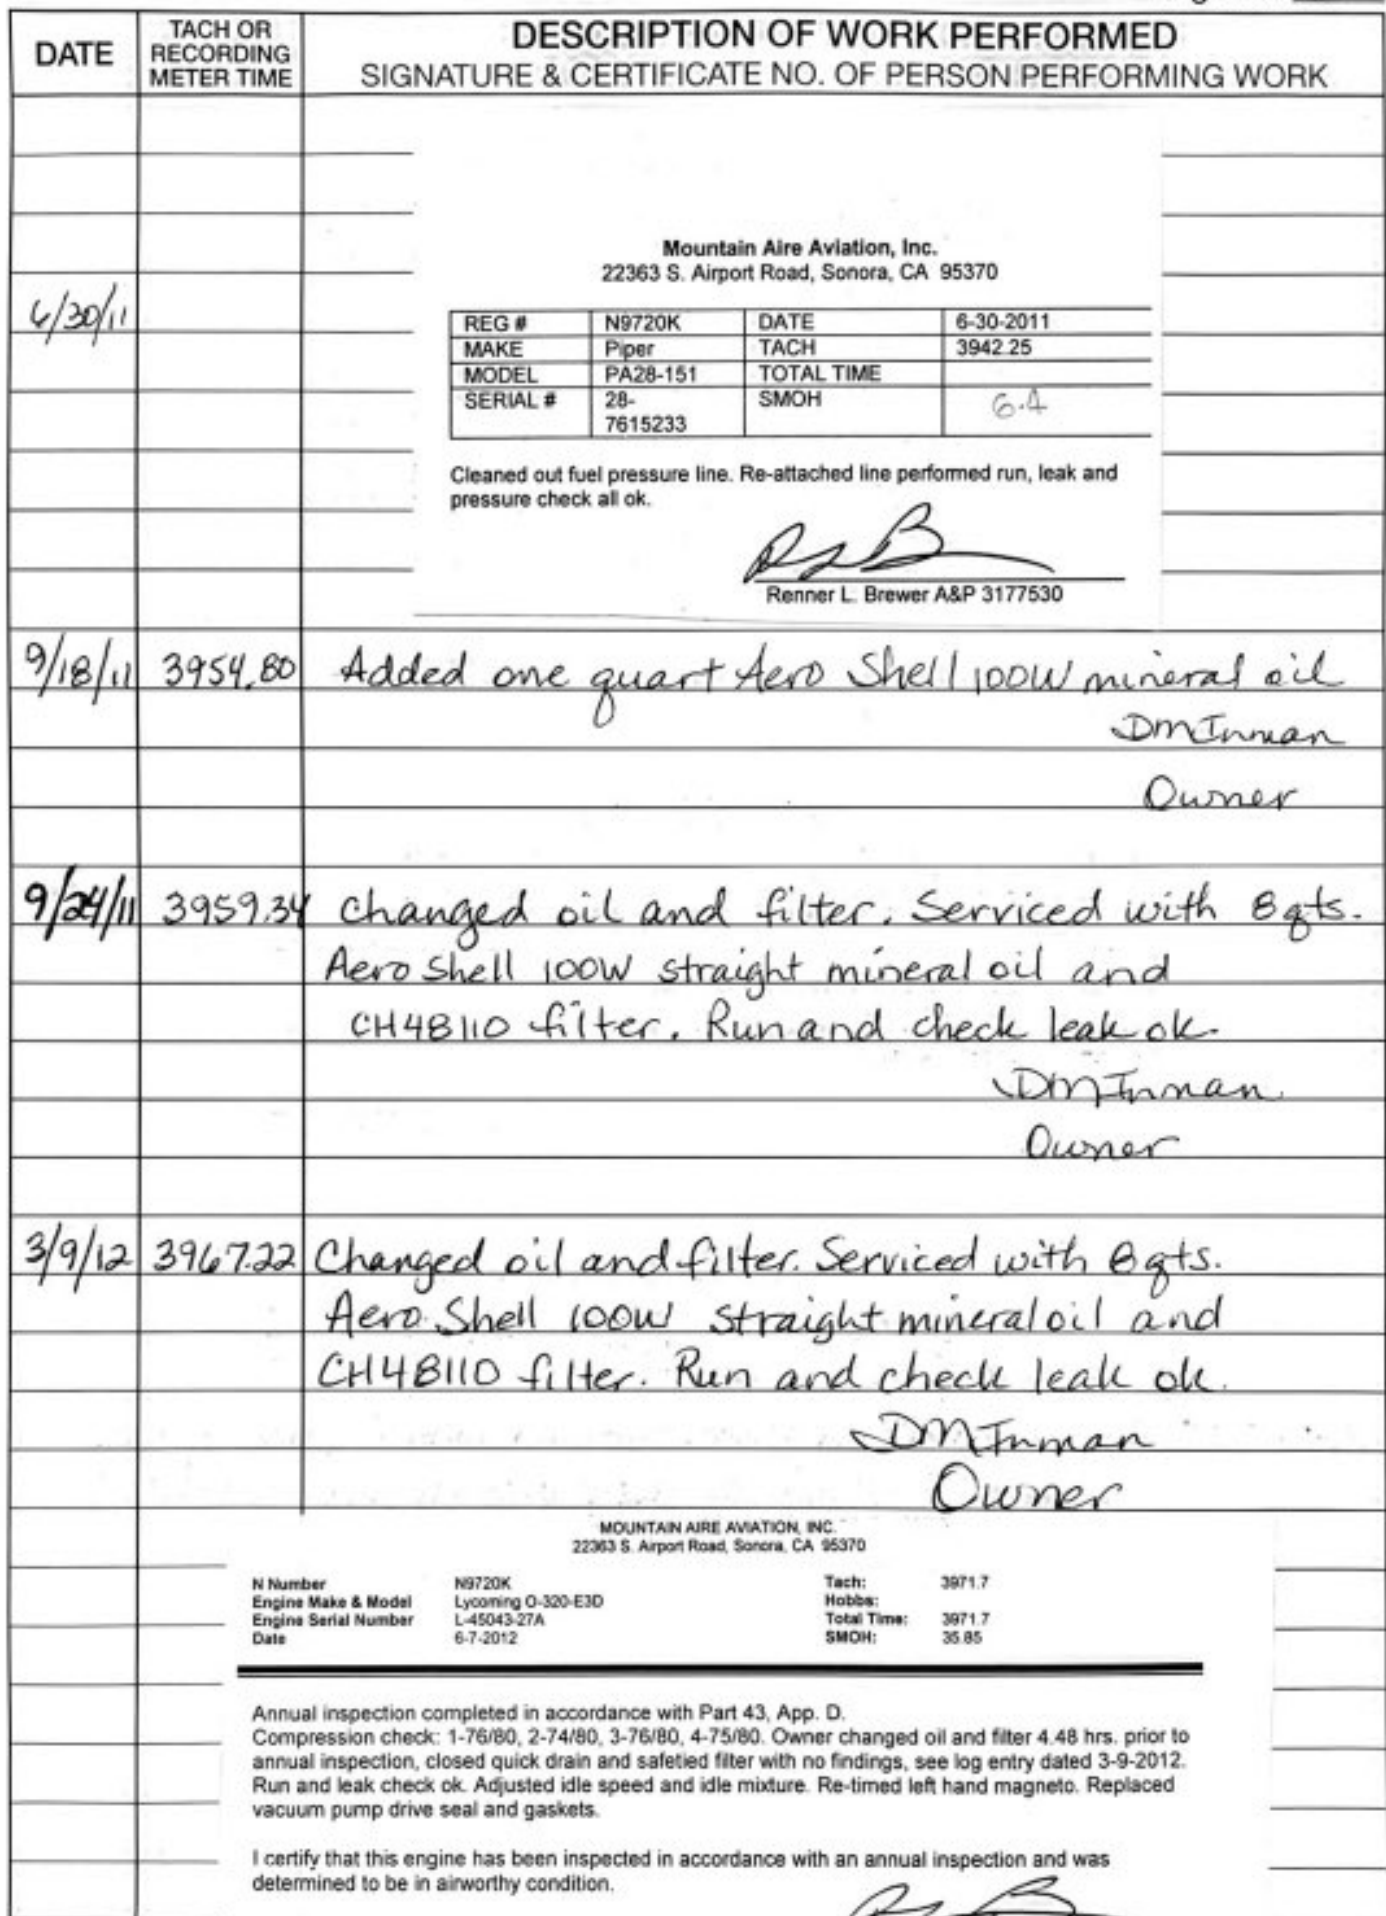 DATE
TACH OR RECORDING METER TIME
DESCRIPTION OF WORK PERFORMED
SIGNATURE & CERTIFICATE NO. OF PERSON PERFORMING WORK
Mountain Aire Aviation, Inc.
22363 S. Airport Road, Sonora, CA 95370
6/30/11
REG # N9720K DATE 6-30-2011
MAKE Piper TACH 3942.25
MODEL PA28-151 TOTAL TIME
SERIAL # 28-7615233 SMOH 6.4
Cleaned out fuel pressure line. Re-attached line performed run, leak and
pressure check all ok.
Renner L. Brewer A&P 3177530
9/18/11 3954.80 Added one quart Aero Shell 100W mineral oil
DMInman
Owner
9/24/11 3959.34 Changed oil and filter. Serviced with 8 qts.
Aero Shell 100W straight mineral oil and
CH48110 filter. Run and check leak ok.
DMInman
Owner
3/9/12 3967.22 Changed oil and filter. Serviced with 8 qts.
Aero Shell 100W straight mineral oil and
CH48110 filter. Run and check leak ok.
DMInman
Owner
MOUNTAIN AIRE AVIATION, INC.
22363 S. Airport Road, Sonora, CA 95370
N Number N9720K Tach: 3971.7
Engine Make & Model Lycoming O-320-E3D Hobbs:
Engine Serial Number L-45043-27A Total Time: 3971.7
Date 6-7-2012 SMOH: 35.85
Annual inspection completed in accordance with Part 43, App. D.
Compression check: 1-76/80, 2-74/80, 3-76/80, 4-75/80. Owner changed oil and filter 4.48 hrs. prior to
annual inspection, closed quick drain and safetied filter with no findings, see log entry dated 3-9-2012.
Run and leak check ok. Adjusted idle speed and idle mixture. Re-timed left hand magneto. Replaced
vacuum pump drive seal and gaskets.
I certify that this engine has been inspected in accordance with an annual inspection and was
determined to be in airworthy condition.